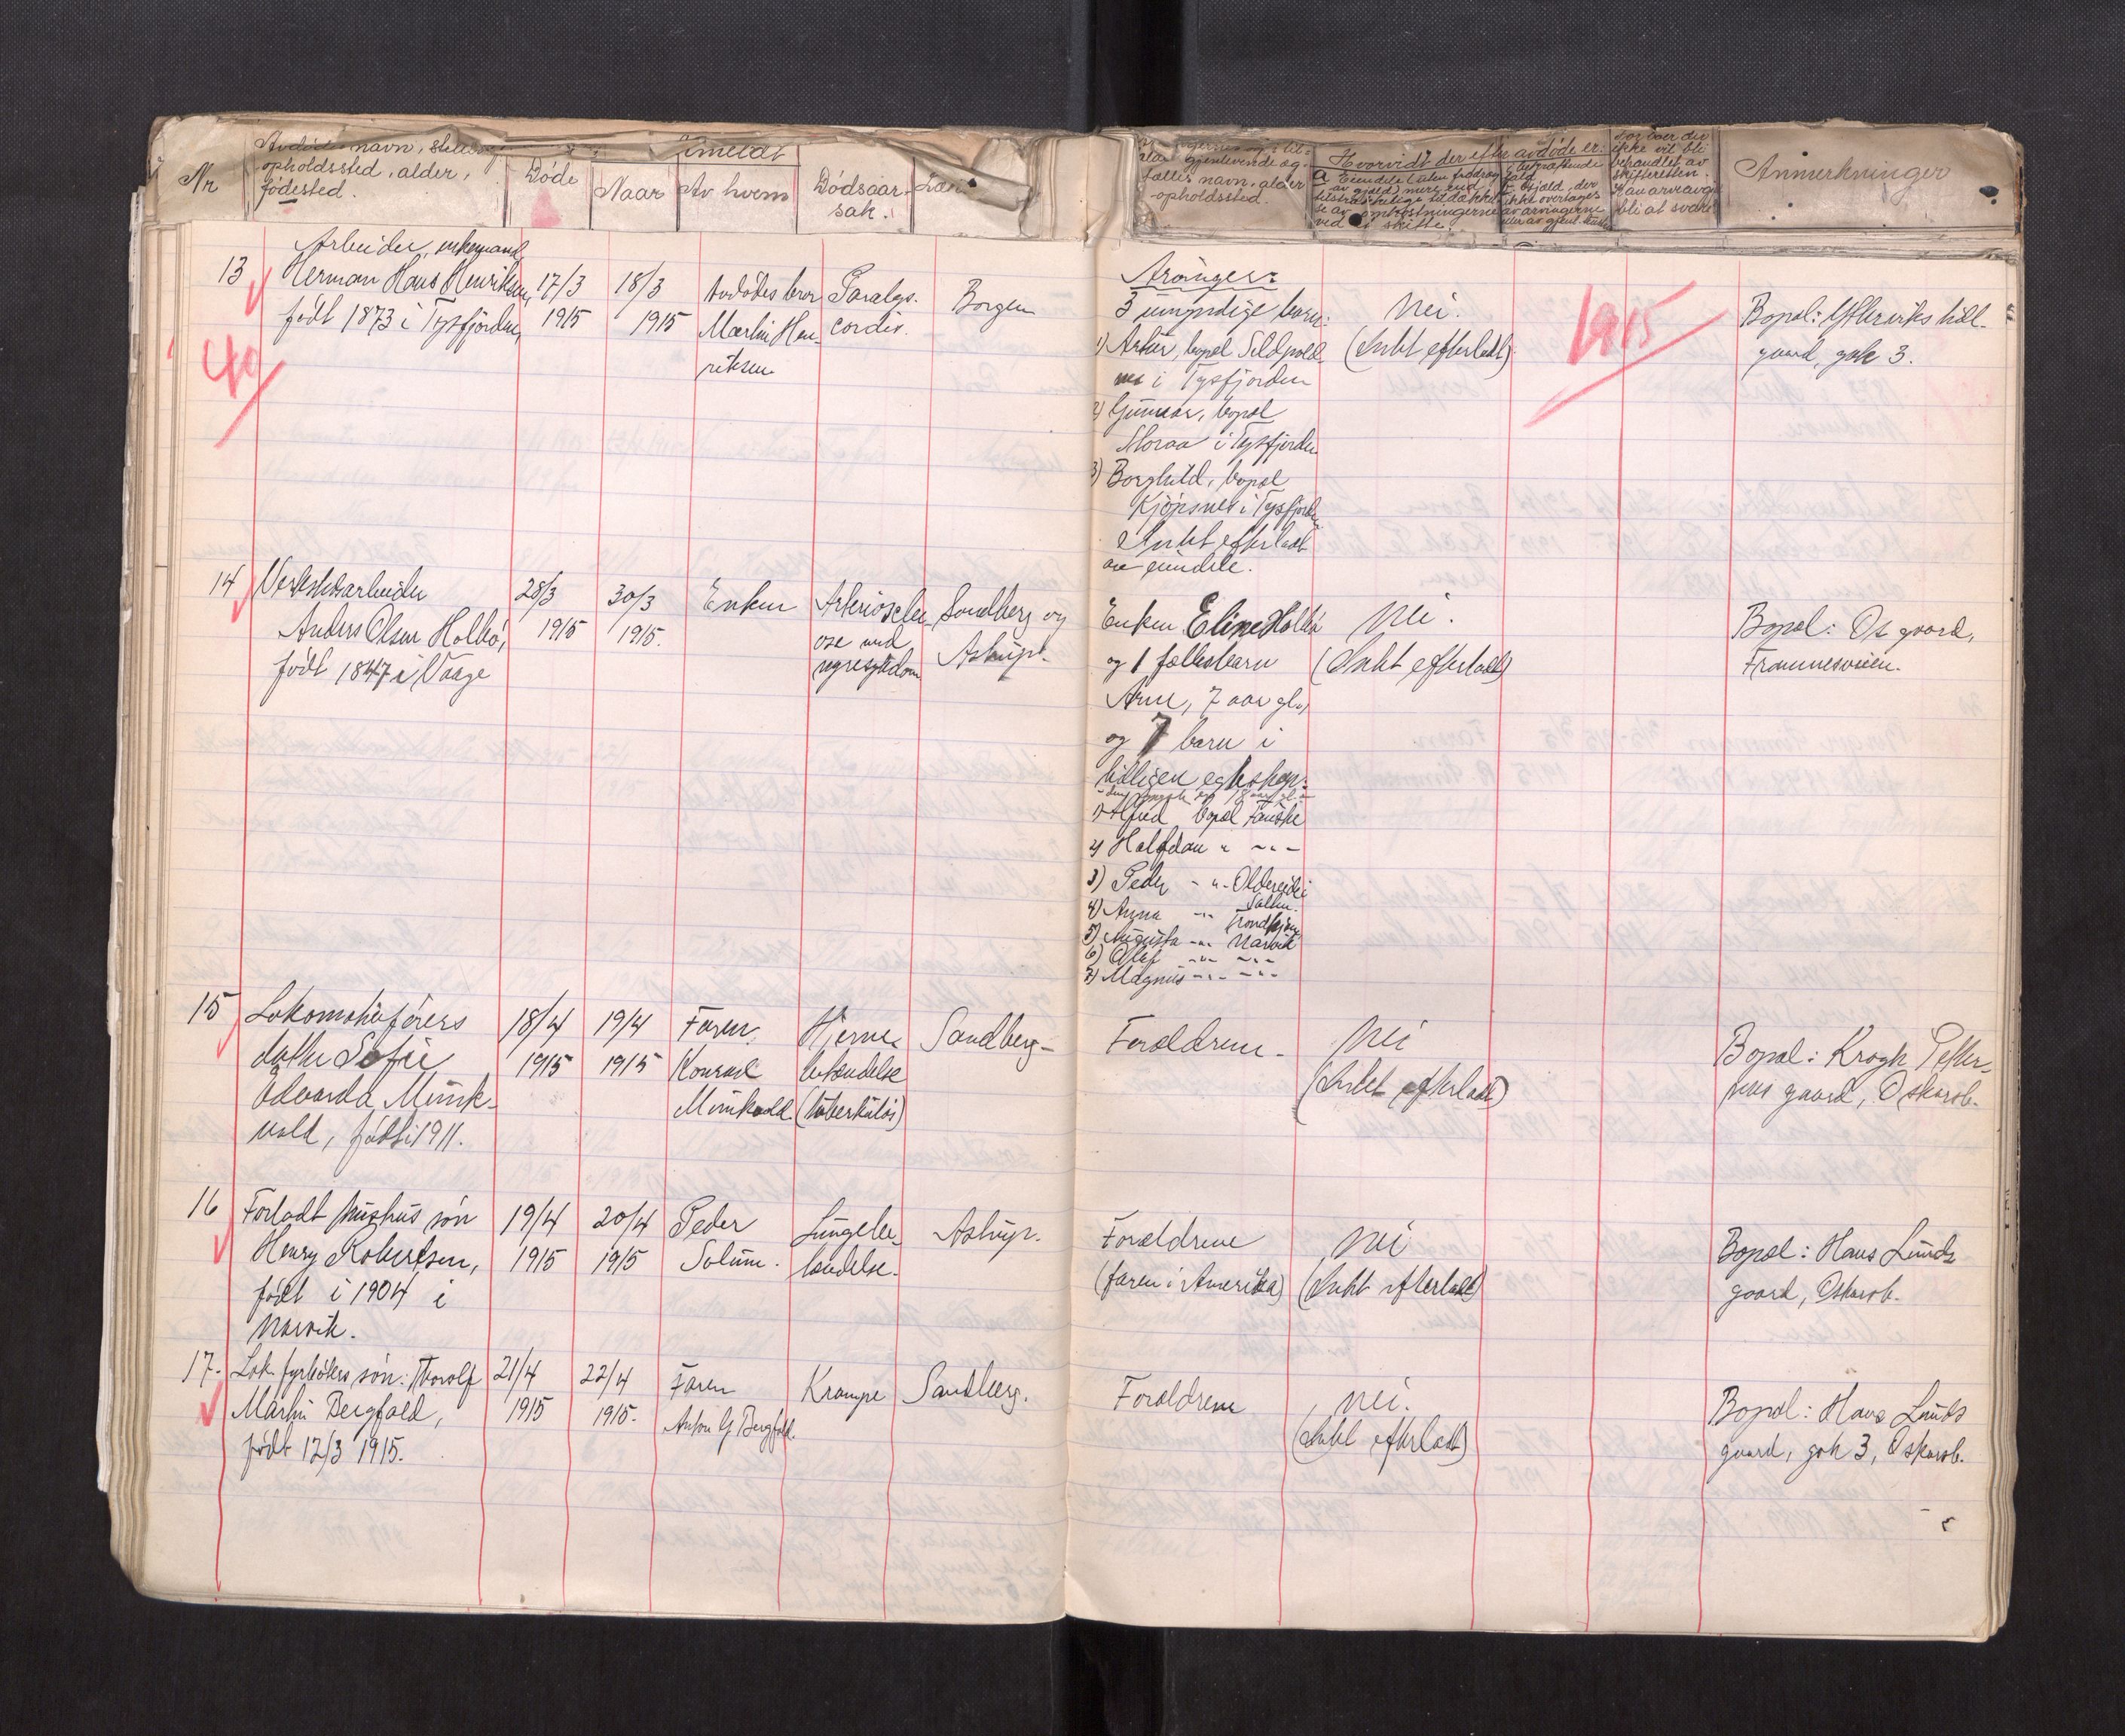 Nr
Avdødes navn, stilling
opholdssted, alder,
fødested.
Døde
Anmeldt
Naar
Av hvem
Dødsaar-
sak.
gjenlevende æg-
tefælles navn, alder
-opholdssted.
Hvorvidt der efter avdøde er:
ikke vil bli
behandlet av
skifteretten.
Anmerkninger
13
Arbeider, enkemand
Herman Hans Henriksen,
født 1873 i Tysfjorden,
17/3
1915
18/3
1915
Avdødes bror
Martin Hen-
riksen
Paralys.
cordis.
Borgen
40
Arvinger:
3 umyndige barn:
1) Artur, bopæl
i Tysfjorden
2) Gunnar, bopæl
Storaa i Tysfjorden
3) Borghild, bopæl
Kjøpsnes i Tysfjorden
Intet efterladt
av eiendele.
Nei.
(Intet efterladt)
1915
Bopæl:
gaard, gate 3.
14
Verkstedsarbeider
Anders Olsen Holbø,
født 1847 i Vaage
28/3
1915
30/3
1915.
Enken
Arterioscler-
ose med
nyresykdom
Sandberg og
Astrup.
Enken Eline Holbø
og 1 fællesbarn
Arne, 7 aar gl.,
og 7 barn i
tidligere egteskap:
1) Alfred bopæl Fauske
2) Halfdan " -"-
3) Peder -"- Oldereide i
Salten.
4) Anna -"- Trondhjem
5) Augusta -"- Narvik
6) Olaf -"- -"-
7) Magnus -"- -"-
Nei.
(Intet efterladt)
Bopæl: Os gaard,
Framnesveien.
15
Lokomotivførers
datter Sofie
Edvarda Munk-
vold, født i 1911.
18/4
1915
19/4
1915
Faren
Konrad
Munkvold
Hjerne
betændelse
(tuberkuløs)
Sandberg-
Forældrene-
Nei
(Intet efterladt)
Bopæl: Krogh Petter-
sens gaard, Oskarsb.
16
Forladt hustrus søn
Henry Robertsen,
født i 1904 i
Narvik.
19/4
1915
20/4
1915
Peder
Solum.
Lungebe-
tændelse.
Astrup.
Forældrene
(faren i Amerika)
Nei
(Intet efterladt)
Bopæl: Hans Lunds
gaard, Oskarsb.
17.
Lok. fyrbøters søn: Thorolf
Martin Bergfald,
født 12/3 1915.
21/4
1915
22/4
1915.
Faren
Anton G Bergfald.
Krampe
Sandberg.
Forældrene
Nei.
(Intet efterladt)
Bopæl: Hans Lunds
gaard, gate 3, Oskarsb.